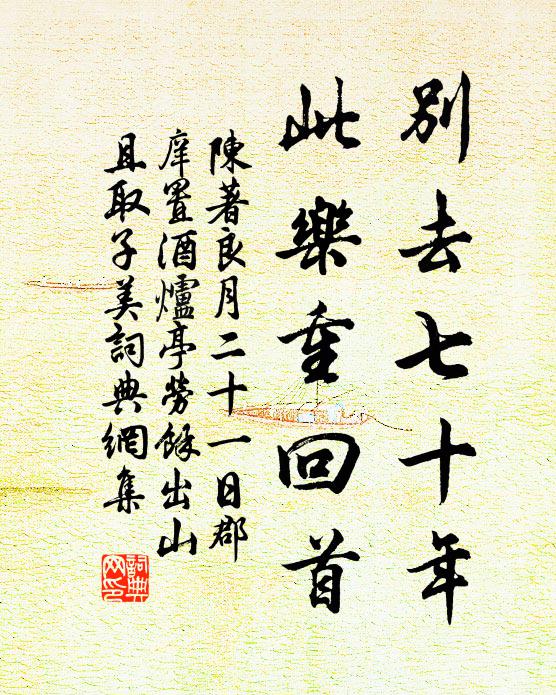 別去七十年
此樂重回首
陳著良月二十一日郡
庠置酒爐亭勞餘出山
且取子美詞典網集
詞典
网印